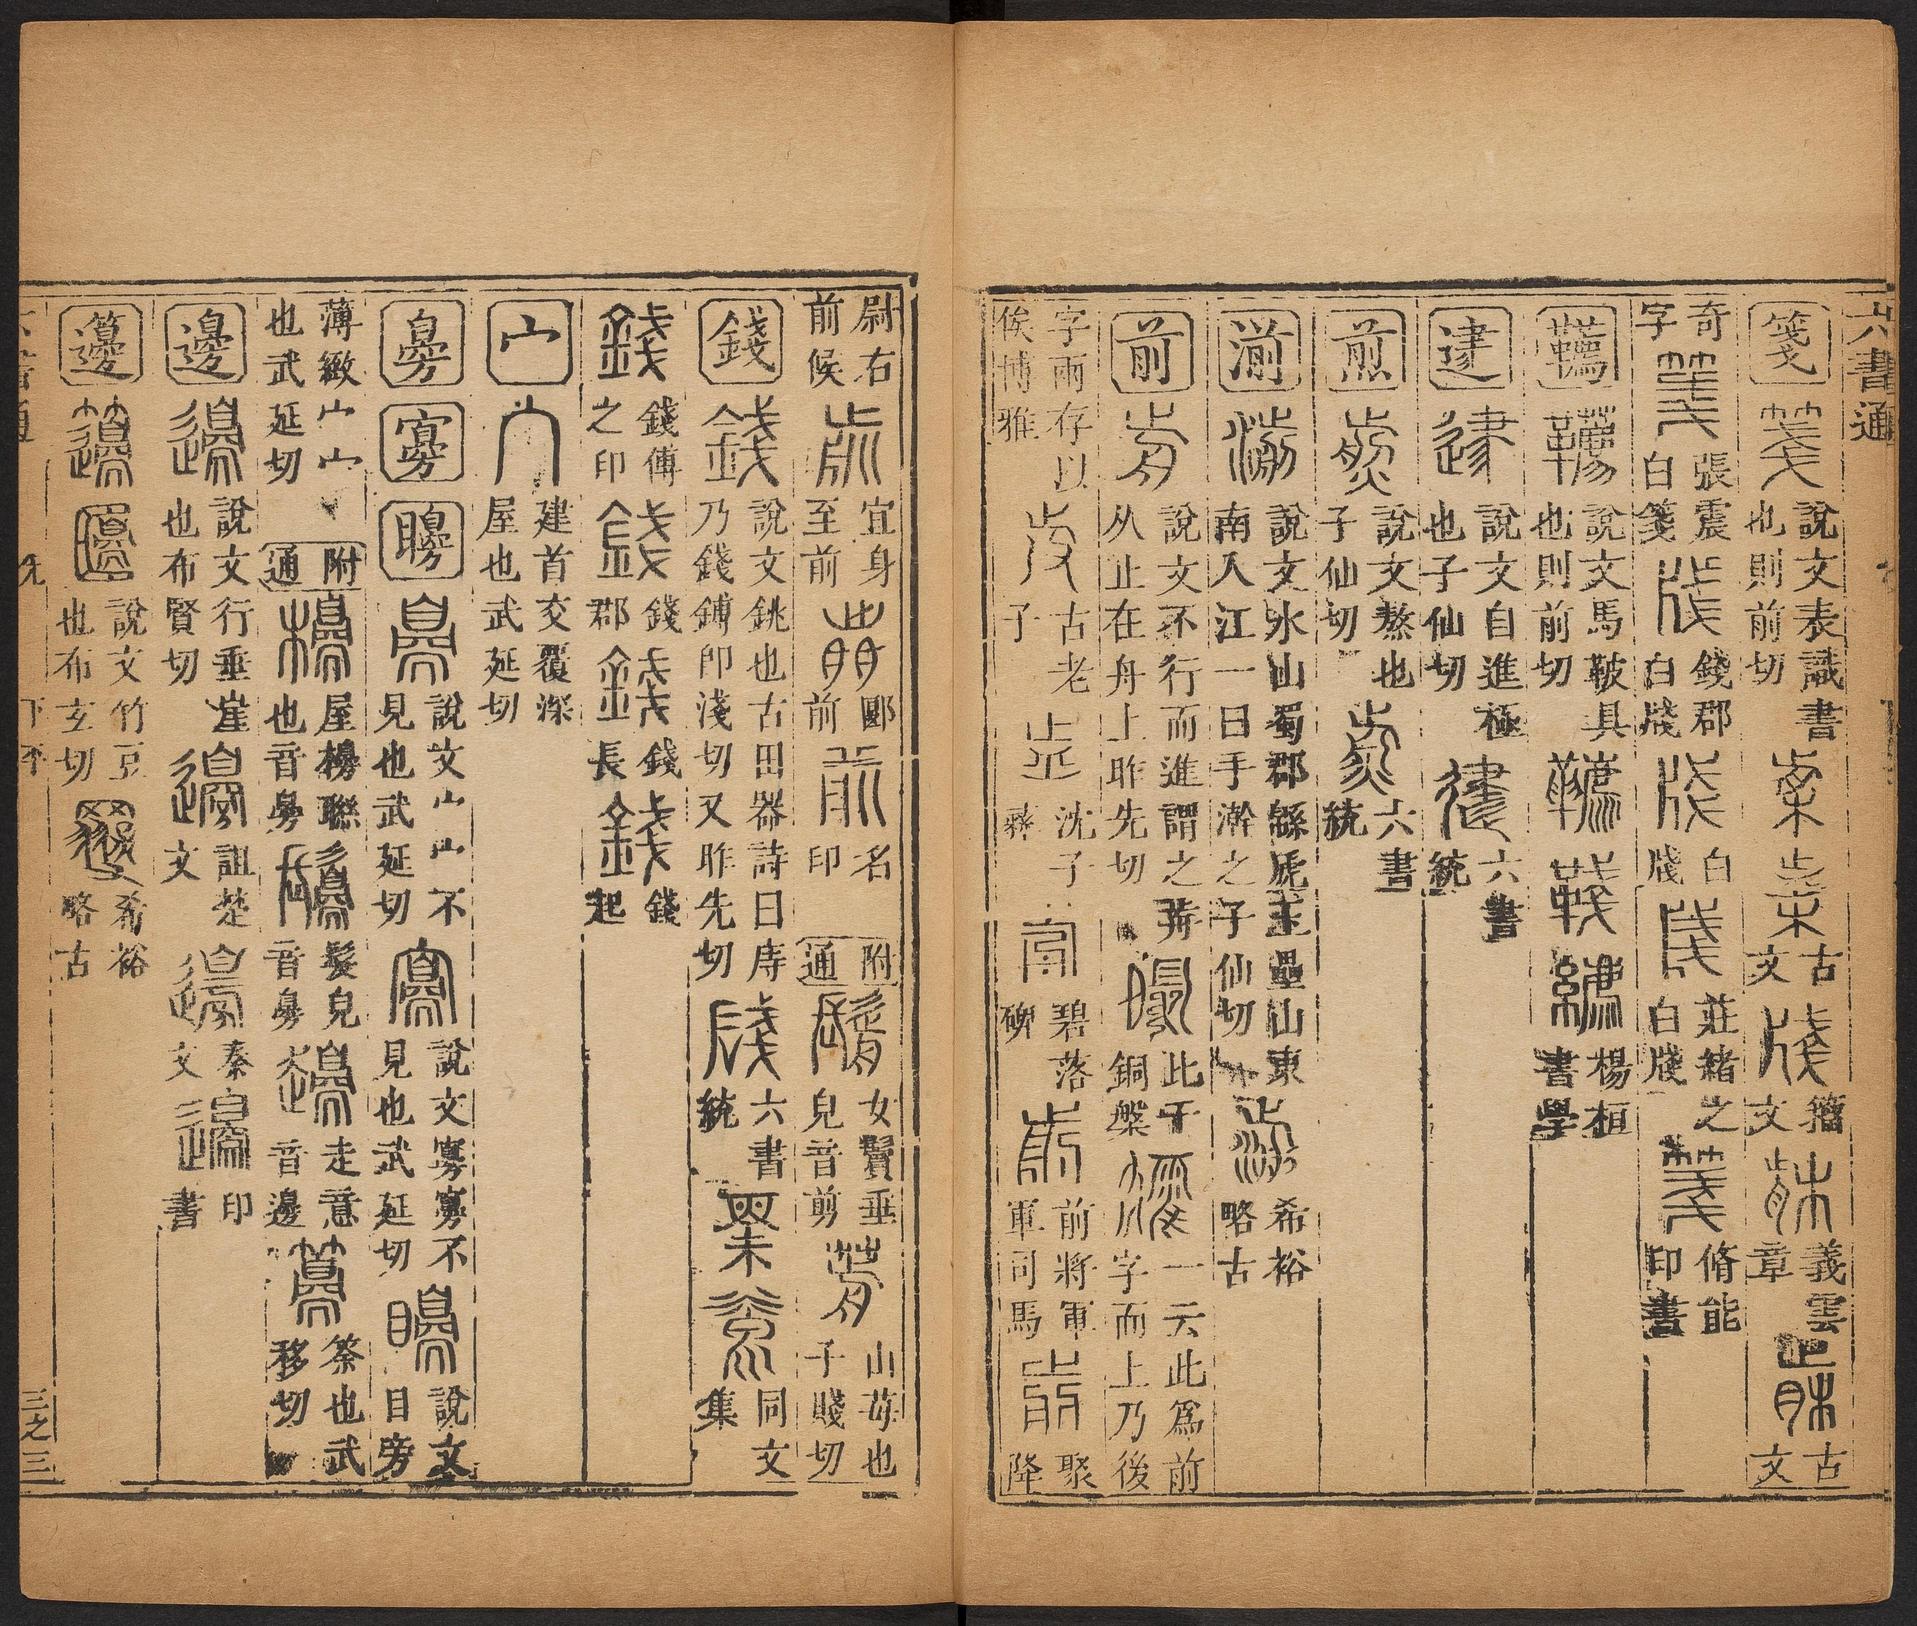 六書通
箋 說文表識書也則前切 古文 籀文 義雲章 古文
奇字 張震白箋 錢郡白牋 白牋 莊緒之白牋 脩能印書
韉 說文馬鞁具也則前切 楊桓書學
說文自進極也子仙切 六書統
煎 說文熬也子仙切 六書統
湔 說文水山蜀郡緜虒玉壘山東南入江一曰手澣之子仙切 希裕略古
前 說文不行而進謂之歬从止在舟上昨先切 此干銅槃 一云此為前字而上乃後
字兩存以俟博雅 古老子 沈子彝 碧落碑 前將軍軍司馬 聚降
尉右前候 宜身至前 郾前 名印 附通 女鬢垂皃音剪 山苺也子賤切
錢 說文銚也古田器詩曰庤乃錢鎛卽淺切又昨先切 六書統 同文集
錢傅之印 錢郡 錢長 錢起
宀 建首交覆深屋也武延切
臱 寡 矈 說文宀宀不見也武延切 說文寡寡不見也武延切 說文目旁
薄緻宀宀也武延切 附通 屋櫋聯也音臱 髮皃音臱 走意音邊 筡也武移切
邊 說文行垂崖也布賢切 詛楚文 秦文 印書
籩 說文竹豆也布玄切 希裕略古
六書通 先 下平 三之三